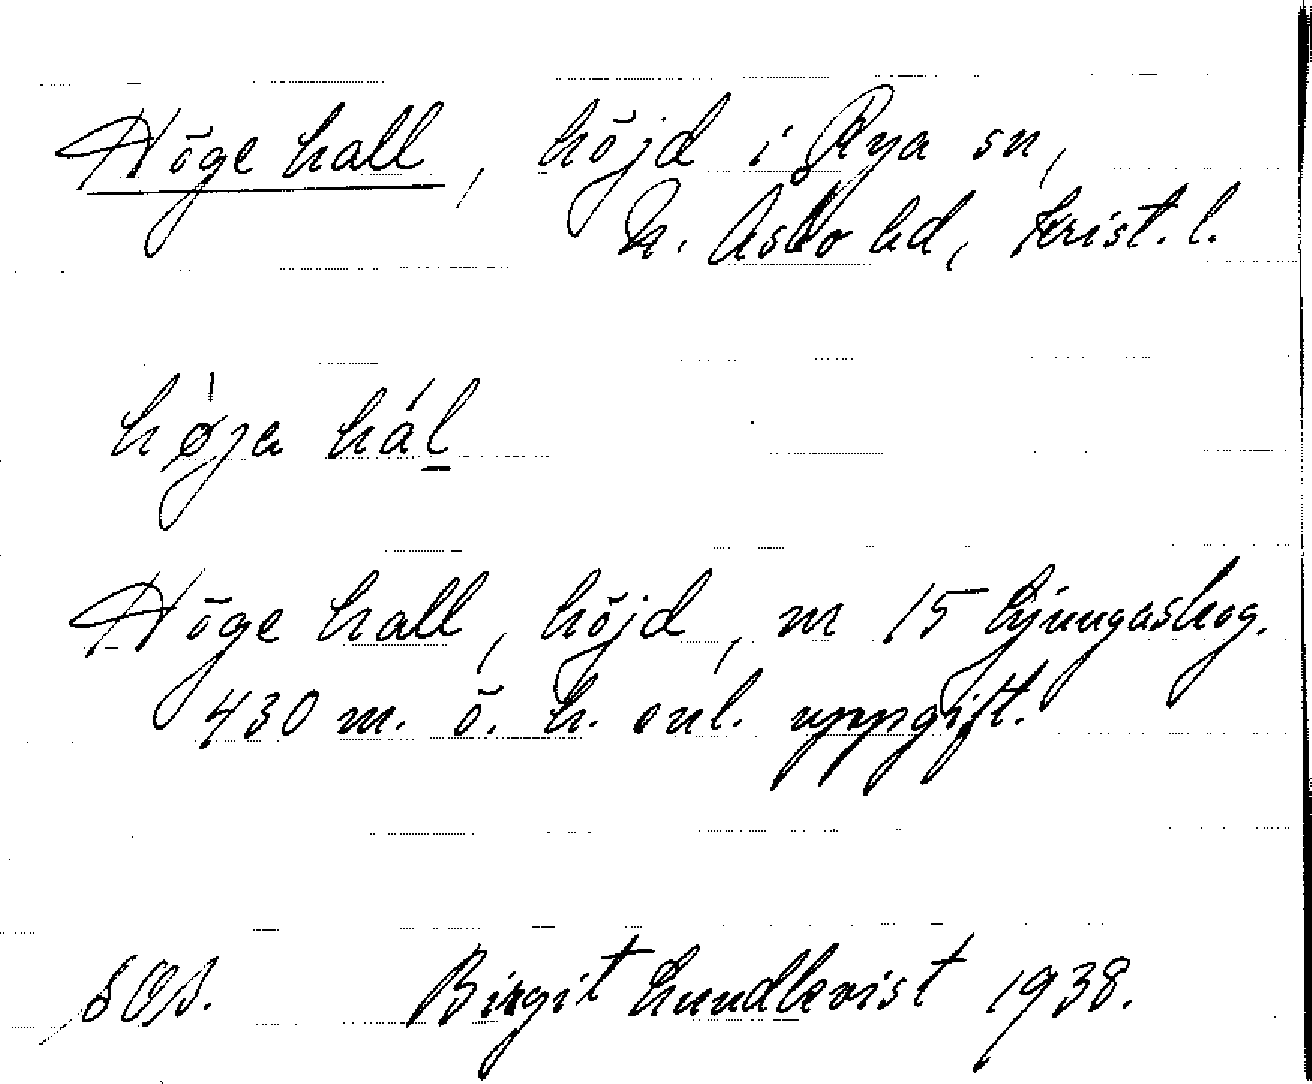 Höge hall, höjd i Rya sn,
N. Åsbo hd, Krist. l.
høja hál
Höge hall, höjd, m 15 Ljungaskog.
430 m. ö. h. enl. uppgift.
SOS. Birgit Lundkvist 1938.